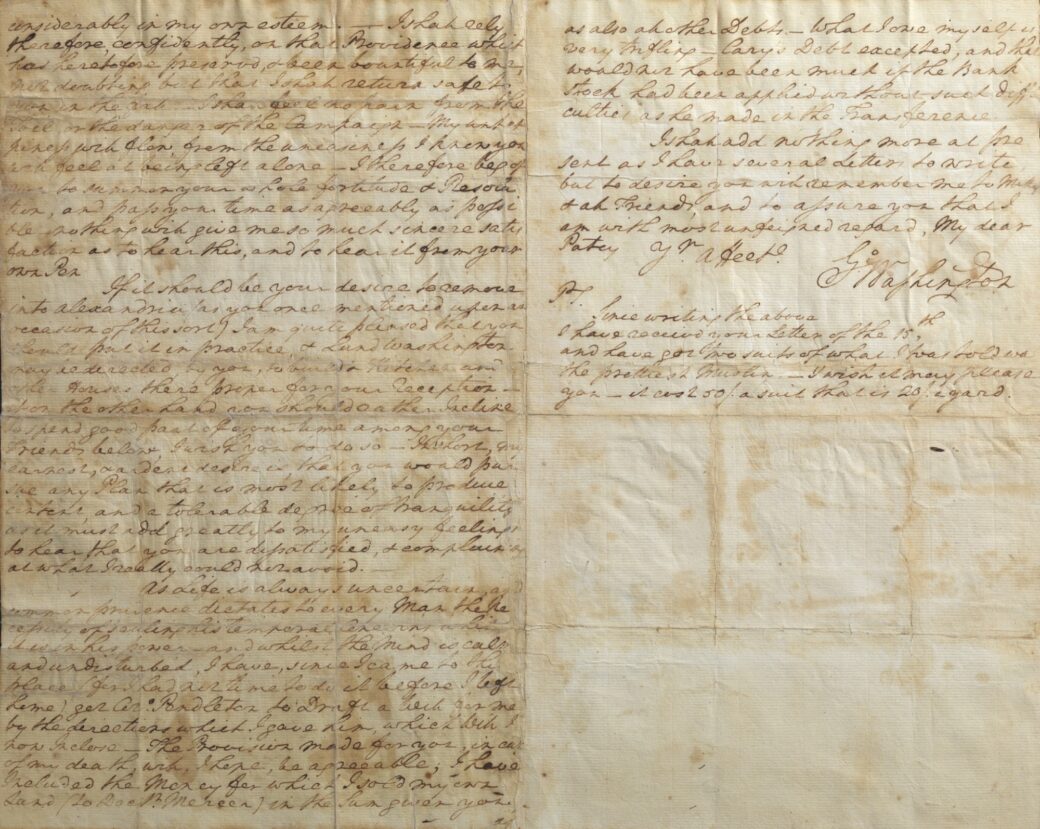 considerably in my own esteem. — I shall rely
therefore, confidently, on that Providence which
has heretofore preserved, & been bountiful to me,
not doubting but that I shall return safe to
you in the fall — I shall feel no pain from the
Toil, or the danger of the Campaign — My unhap
piness will flow, from the uneasiness I know you
will feel at being left alone — I therefore beg of
you to summon your whole fortitude & Resolu
tion, and pass your time as agreeably as possi
ble — nothing will give me so much sincere satis
faction as to hear this, and to hear it from your
own Pen
If it should be your desire to remove
into Alexandria (as you once mentioned upon an
occasion of this sort) I am quite pleased that you
should put it in practice, & Lund Washington
may be directed, by you, to build a Kitchen and
other Houses there proper for your reception —
if on the other hand you should rather Incline
to spend good part of your time among your
Friends below, I wish you to do so — In short, my
earnest, & ardent desire is that you would pur
sue any Plan that is most likely to produce
content, and a tolerable degree of Tranquility
as it must add greatly to my uneasy feelings
to hear that you are dissatisfied, & complaining
at what I really could not avoid. —
As Life is always uncertain, and
common prudence dictates to every Man the Ne
cessity of settling his temporal Concerns whilst
it is in his power — and whilst the Mind is calm
and undisturbed, I have, since I came to this
place (for I had not time to do it before I left
home) got Colo. Pendleton to Draft a Will for me
by the directions which I gave him, which Will I
now Inclose — The Provision made for you, in case
of my death, will, I hope, be agreeable; I have
Included the Money for which I sold my own
Land (to Doctr. Mercer) in the Sum given you,
as also all other Debts. — What I owe myself is
very trifling — Cary's Debt excepted, and this
would not have been much if the Bank
stock had been applied without such diffi
culties as he made in the Transference.
I shall add nothing more at pre
sent as I have several Letters to write
but to desire you will remember me to Milly
& all Friends, and to assure you that I
am with most unfeigned regard, My dear
Patcy Yr. Affecte.
Go: Washington
PS.
Since writing the above
I have received your Letter of the 15th
and have got two suits of what I was told was
the prettiest Muslin — I wish it may please
you — it cost 50/. a suit that is 20/. a yard.